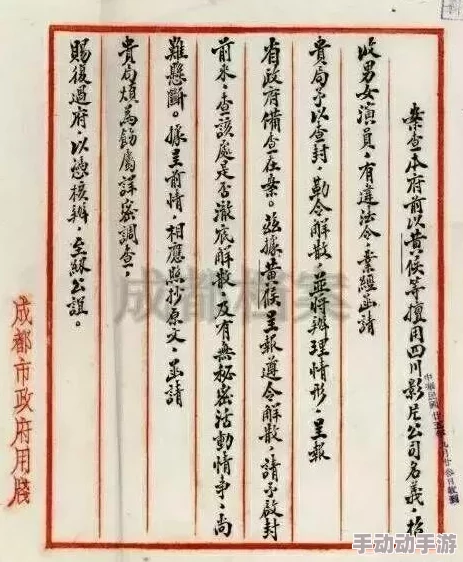 案查本府前以黄侯等擅用四川影片公司名義,招
收男女演員,有違法令,業經函請
貴局予以查封,勒令解散,並將辦理情形,呈報
省政府備查在案。茲據黄侯呈報遵令解散,請予啟封
前来,查該處是否澈底解散及有無秘密活動情事,尚
難懸斷。據呈前情,相應照抄原文,函請
貴局煩為飭屬詳密調查,
賜復過府,以憑核辦,至級公誼。
成都市政府用牋
中華民國廿五年九月廿
收到
成都档案
手动动手游